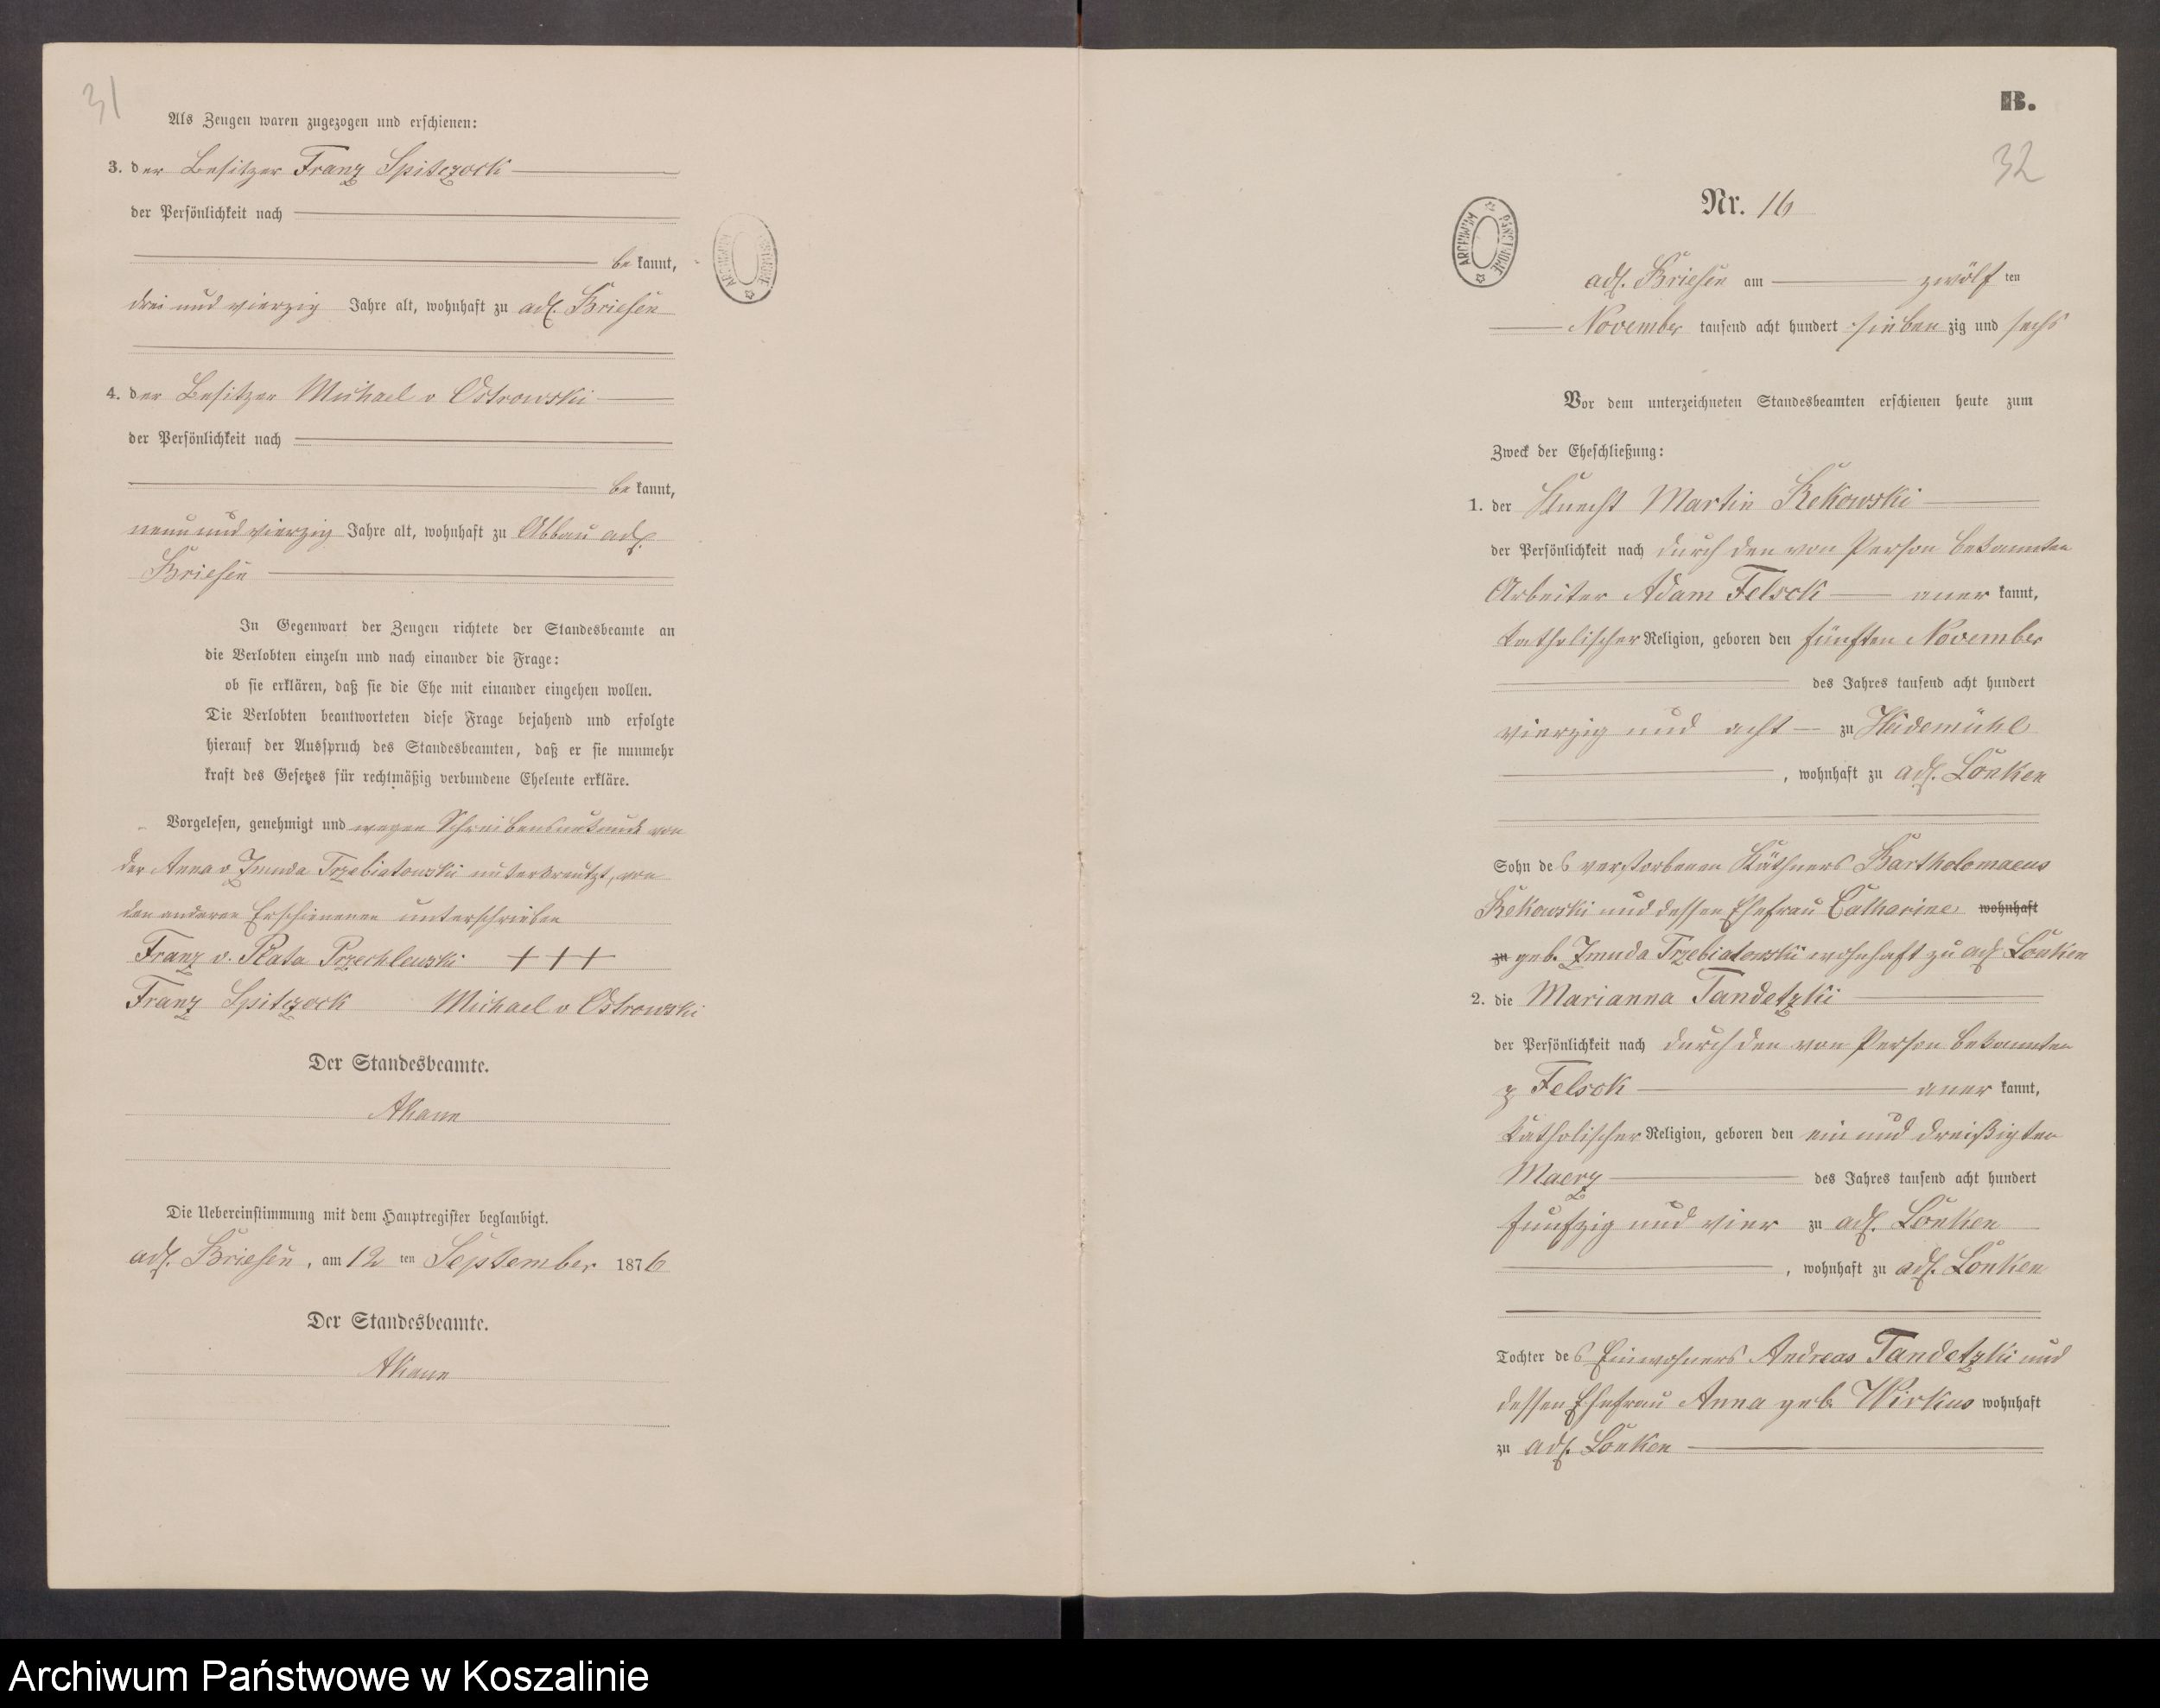 31
Als Zeugen waren zugezogen und erschienen:
3. der Besitzer Franz Spitczock
der Persönlichkeit nach
be kannt,
drei und vierzig Jahre alt, wohnhaft zu adl. Briesen
4. der Besitzer Michael v Ostrowski
der Persönlichkeit nach
be kannt,
neun und vierzig Jahre alt, wohnhaft zu Abbau adl.
Briesen
In Gegenwart der Zeugen richtete der Standesbeamte an
die Verlobten einzeln und nach einander die Frage:
ob sie erklären, daß sie die Ehe mit einander eingehen wollen.
Die Verlobten beantworteten diese Frage bejahend und erfolgte
hierauf der Ausspruch des Standesbeamten, daß er sie nunmehr
kraft des Gesetzes für rechtmäßig verbundene Eheleute erkläre.
Vorgelesen, genehmigt und wegen Schreibensunkunde von
der Anna v Zmuda Trzebiatowski unterkreutzt, von
den anderen Erschienenen unterschrieben
Franz v. Rata Przechlewski +++
Franz Spitczock Michael v Ostrowski
Der Standesbeamte.
Die Uebereinstimmung mit dem Hauptregister beglaubigt.
adl. Briesen, am 12 ten September 1876
Der Standesbeamte.
ARCHIWUM PAŃSTWOWE
B.
32
Nr. 16
ARCHIWUM PAŃSTWOWE
adl. Briesen am zwölf ten
November tausend acht hundert sieben zig und sechs
Vor dem unterzeichneten Standesbeamten erschienen heute zum
Zweck der Eheschließung:
1. der Knecht Martin Rekowski
der Persönlichkeit nach durch den von Person bekannten
Arbeiter Adam Felsck aner kannt,
katholischer Religion, geboren den fünften November
des Jahres tausend acht hundert
vierzig und acht zu Heidemühl
, wohnhaft zu adl. Lonken
Sohn des verstorbenen Käthners Bartholomaeus
Rekowski und dessen Ehefrau Catharine wohnhaft
zu geb. Zmuda Trzebiatowski wohnhaft zu adl Lonken
2. die Marianna Tandetzki
der Persönlichkeit nach durch den von Person bekannten
Felsck aner kannt,
katholischer Religion, geboren den ein und dreißigten
Maerz des Jahres tausend acht hundert
funfzig und vier zu adl. Lonken
, wohnhaft zu adl. Lonken
Tochter des Einwohners Andreas Tandetzki und
dessen Ehefrau Anna geb. Wirkus wohnhaft
zu adl. Lonken
Archiwum Państwowe w Koszalinie